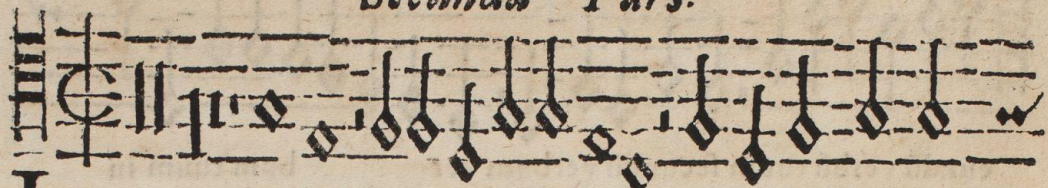 Secunda Pars.